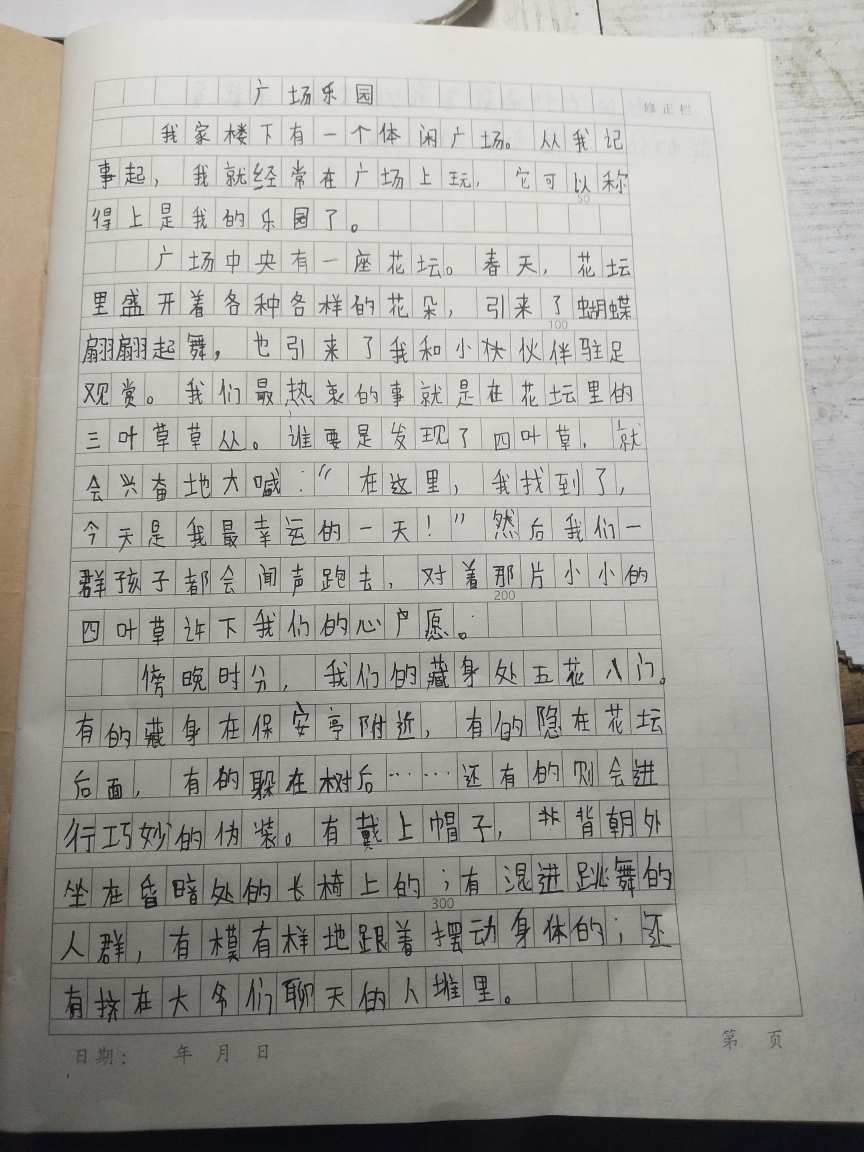 广场乐园
修正栏
我家楼下有一个体闲广场。从我记
事起，我就经常在广场上玩，它可以称
50
得上是我的乐园了。
广场中央有一座花坛。春天，花坛
里盛开着各种各样的花朵，引来了蝴蝶
100
翩翩起舞，也引来了我和小伙伙伴驻足
观赏。我们最热衷的事就是在花坛里的
三叶草草丛。谁要是发现了四叶草，就
会兴奋地大喊：“在这里，我找到了，
今天是我最幸运的一天！”然后我们一
群孩子都会闻声跑去，对着那片小小的
200
四叶草许下我们的心愿。
傍晚时分，我们的藏身处五花八门。
有的藏身在保安亭附近，有的隐在花坛
后面，有的躲在树后……还有的则会进
行巧妙的伪装。有戴上帽子，背朝外
坐在昏暗处的长椅上的；有混进跳舞的
300
人群，有模有样地跟着摆动身体的；还
有挤在大爷们聊天的人堆里。
日期： 年 月 日
第 页